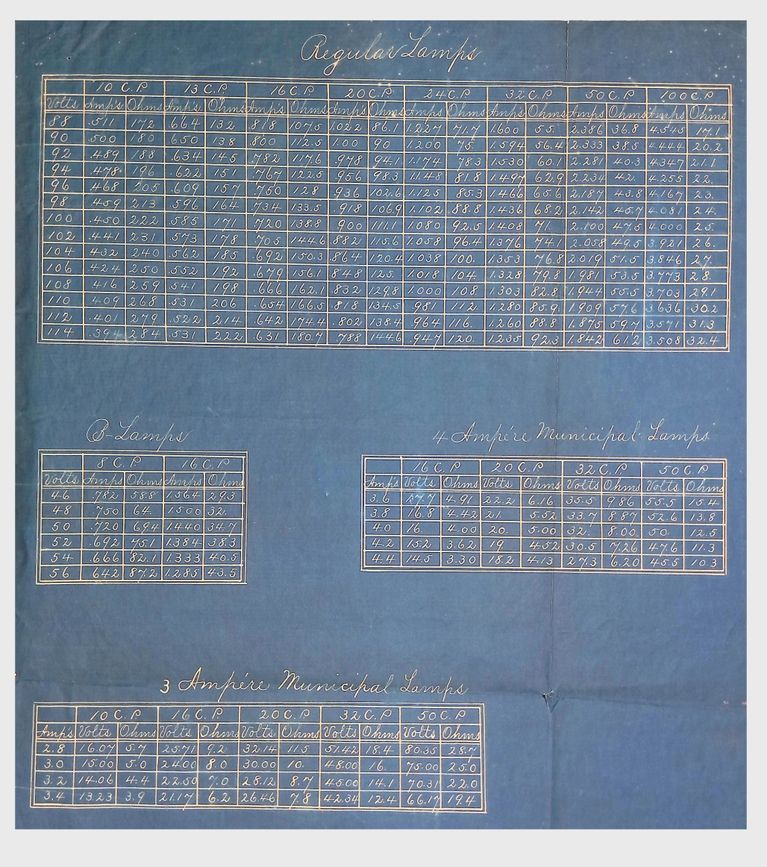 Regular Lamps
10 C.P 13 C.P 16 C.P 20 C.P 24 C.P 32 C.P 50 C.P 100 C.P
Volts Amp's Ohms Amp's Ohms Amp's Ohms Amp's Ohms Amp's Ohms Amp's Ohms Amp's Ohms Amp's Ohms
88 .511 172 .664 132 .818 107.5 1.022 86.1 1.227 71.7 1.600 55. 2.386 36.8 4.545 19.1
90 .500 180 .650 138 .800 112.5 1.00 90 1.200 75 1.594 56.4 2.333 38.5 4.444 20.2
92 .489 188 .634 145 .782 117.6 .978 94.1 1.174 78.3 1.530 60.1 2.281 40.3 4.347 21.1
94 .478 196 .622 151 .767 122.5 .956 98.3 1.148 81.8 1.497 62.9 2.234 42. 4.255 22.
96 .468 205 .609 157 .750 128 .936 102.6 1.125 85.3 1.466 65.6 2.187 43.8 4.167 23.
98 .459 213 .596 164 .734 133.5 .918 106.9 1.102 88.8 1.436 68.2 2.142 45.7 4.081 24.
100 .450 222 .585 171 .720 138.8 .900 111.1 1.080 92.5 1.408 71. 2.100 47.5 4.000 25.
102 .441 231 .573 178 .705 144.6 .882 115.6 1.058 96.4 1.376 74.1 2.058 49.5 3.921 26.
104 .432 240 .562 185 .692 150.3 .864 120.4 1.038 100. 1.353 76.8 2.019 51.5 3.846 27.
106 .424 250 .552 192 .679 156.1 .848 125. 1.018 104 1.328 79.8 1.981 53.5 3.773 28.
108 .416 259 .541 198 .666 162.1 .832 129.8 1.000 108 1.303 82.8 1.944 55.5 3.703 29.1
110 .409 268 .531 206 .654 166.5 .818 134.5 .981 112 1.280 85.9 1.909 57.6 3.636 30.2
112 .401 279 .522 214 .642 174.4 .802 138.4 .964 116. 1.260 88.8 1.875 59.7 3.571 31.3
114 .394 284 .531 222 .631 180.7 .788 144.6 .947 120. 1.235 92.3 1.842 61.2 3.508 32.4
B-Lamps
8 C.P 16 C.P
Volts Amp's Ohms Amp's Ohms
46 .782 58.8 1.564 29.3
48 .750 64. 1.500 32.
50 .720 69.4 1.440 34.7
52 .692 75.1 1.384 38.3
54 .666 82.1 1.333 40.5
56 .642 87.2 1.285 43.5
4 Ampére Municipal Lamps
16 C.P 20 C.P 32 C.P 50 C.P
Amp's Volts Ohms Volts Ohms Volts Ohms Volts Ohms
3.6 17.7 4.91 22.2 6.16 35.5 9.86 55.5 15.4
3.8 16.8 4.42 21. 5.52 33.7 8.87 52.6 13.8
4.0 16 4.00 20. 5.00 32. 8.00 50. 12.5
4.2 15.2 3.62 19 4.52 30.5 7.26 47.6 11.3
4.4 14.5 3.30 18.2 4.13 27.3 6.20 45.5 10.3
3 Ampére Municipal Lamps
10 C.P 16 C.P 20 C.P 32 C.P 50 C.P
Amp's Volts Ohms Volts Ohms Volts Ohms Volts Ohms Volts Ohms
2.8 16.07 5.7 25.71 9.2 32.14 11.5 51.42 18.4 80.35 28.7
3.0 15.00 5.0 24.00 8.0 30.00 10. 48.00 16. 75.00 25.0
3.2 14.06 4.4 22.50 7.0 28.12 8.7 45.00 14.1 70.31 22.0
3.4 13.23 3.9 21.17 6.2 26.46 7.8 42.34 12.4 66.17 19.4